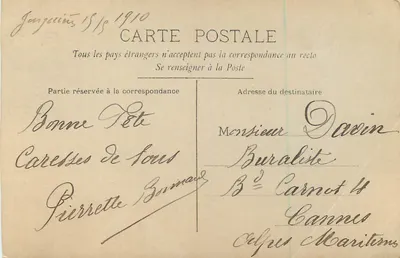 Jonquières 15/5 1910
CARTE POSTALE
Tous les pays étrangers n'acceptent pas la correspondance au recto
Se renseigner à la Poste
Partie réservée à la correspondance
Adresse du destinataire
Bonne Fête
Caresses de tous
Pierrette
Monsieur Davin
Buraliste
Bd Carnot 4
Cannes
Alpes Maritimes